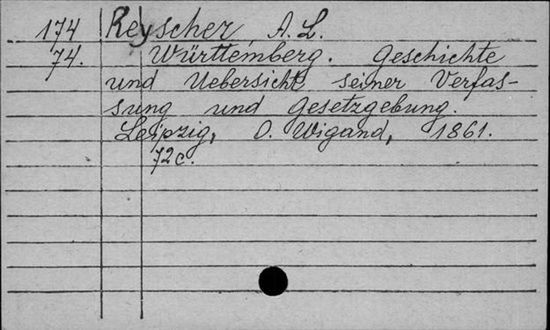 174 Reyscher, A. L.
74. Württemberg. Geschichte
und Uebersicht seiner Verfas-
sung und Gesetzgebung.
Leipzig, O. Wigand, 1861.
72c.